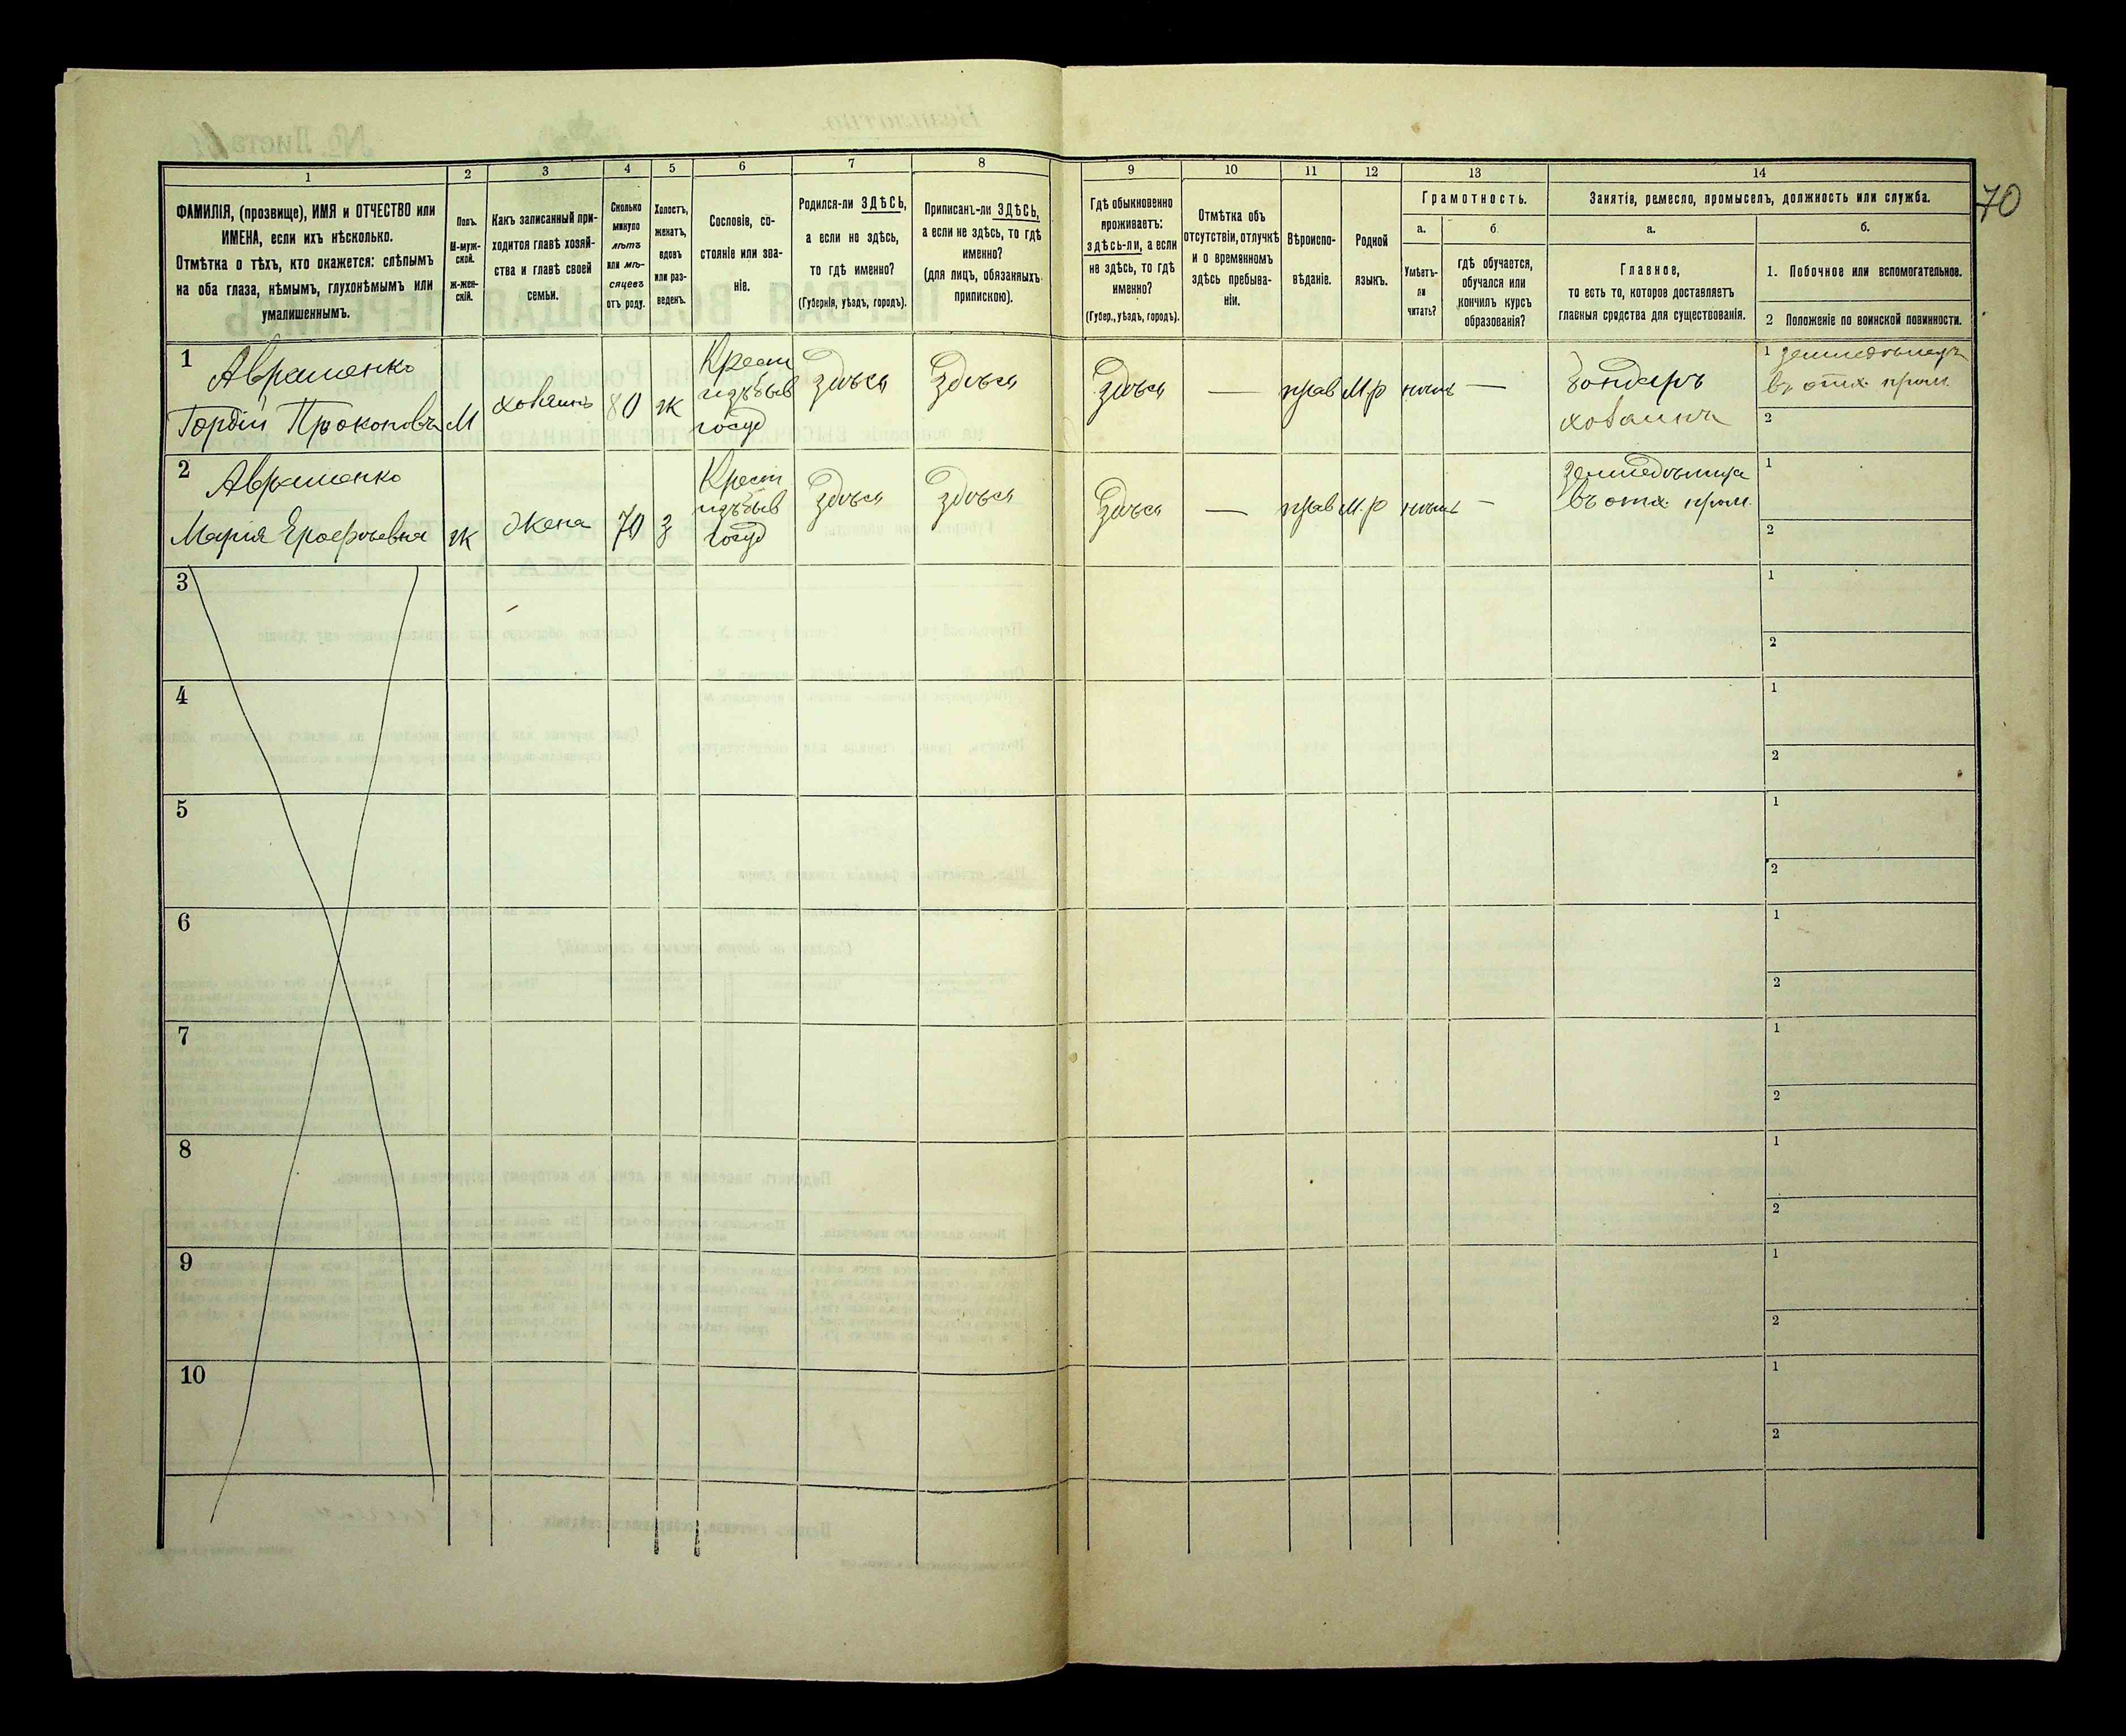 70
1 2 3 4 5 6 7 8 9 10 11 12 13 14
ФАМИЛІЯ, (прозвище), ИМЯ и ОТЧЕСТВО или
ИМЕНА, если ихъ нѣсколько.
Отмѣтка о тѣхъ, кто окажется: слѣпымъ
на оба глаза, нѣмымъ, глухонѣмымъ или
умалишеннымъ.
Полъ.
М-муж-
ской.
Ж-жен-
скій.
Какъ записанный при-
ходится главѣ хозяй-
ства и главѣ своей
семьи.
Сколько
минуло
лѣтъ
или мѣ-
сяцевъ
отъ роду.
Холостъ,
женатъ,
вдовъ
или раз-
веденъ.
Сословіе, со-
стояніе или зва-
ніе.
Родился-ли ЗДѢСЬ,
а если не здѣсь,
то гдѣ именно?
(Губернія, уѣздъ, городъ).
Приписанъ-ли ЗДѢСЬ,
а если не здѣсь, то гдѣ
именно?
(для лицъ, обязанныхъ
припискою).
Гдѣ обыкновенно
проживаетъ:
здѣсь-ли, а если
не здѣсь, то гдѣ
именно?
(Губер., уѣздъ, городъ).
Отмѣтка объ
отсутствіи, отлучкѣ
и о временномъ
здѣсь пребыва-
ніи.
Вѣроиспо-
вѣданіе.
Родной
языкъ.
Грамотность.
а.
Умѣетъ-
ли
читать?
б.
гдѣ обучается,
обучался или
кончилъ курсъ
образованія?
Занятіе, ремесло, промыселъ, должность или служба.
а.
Главное,
то есть то, которое доставляетъ
главныя средства для существованія.
б.
1. Побочное или вспомогательное.
2 Положеніе по воинской повинности.
1
Авраменко
Гордій Прокоповъ
М
хозяинъ
80
ж
Крест
изъ быв
госуд
здѣсь
здѣсь
здѣсь
—
прав
М.р
нѣтъ
—
бондарь
хозаинъ
1 земледѣлецъ
въ отх. пром.
2
2
Авраменко
Марія Ерофѣевна
ж
Жена
70
з
Крест
изъ быв
госуд
здѣсь
здѣсь
здѣсь
—
прав
М.р
нѣтъ
—
земледѣлица
въ отх. пром.
1
2
3
1
2
4
1
2
5
1
2
6
1
2
7
1
2
8
1
2
9
1
2
10
1
2